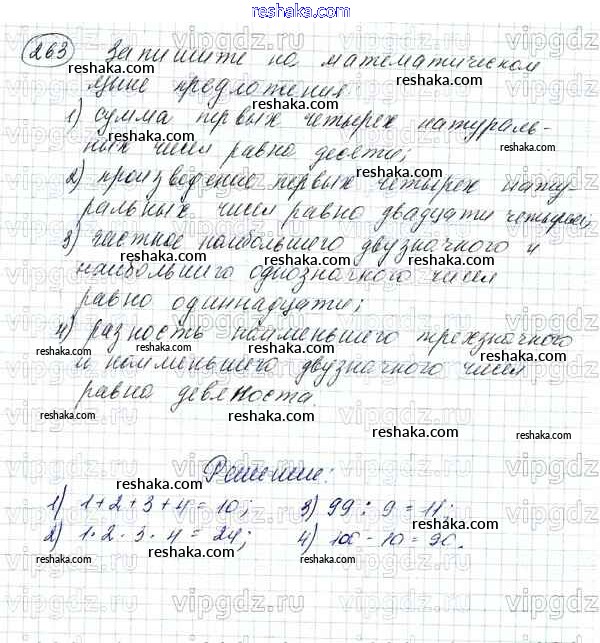 reshaka.com
263 Запишите на математическом
языке предложения:
1) сумма первых четырех натураль-
ных чисел равна десяти;
2) произведение первых четырех нату-
ральных чисел равно двадцати четырем;
3) частное наибольшего двузначного и
наибольшего однозначного чисел
равно одиннадцати;
4) разность наименьшего трехзначного
и наименьшего двузначного чисел
равна девяноста
Решение:
1) 1+2+3+4=10; 3) 99:9=11;
2) 1·2·3·4=24; 4) 100-10=90.